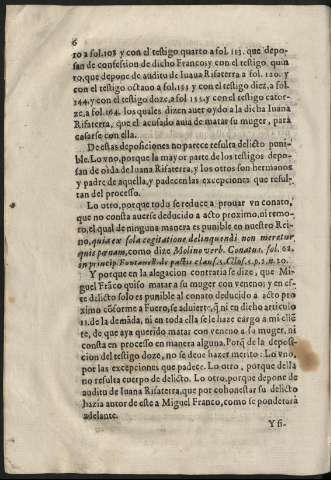 6
to a fol.108 y con el testigo quarto a fol. 113. que depo-
san de confession de dicho Franco; y con el testigo quin
to, que depone de auditu de Iuana Risaterra a fol. 120. y
con el testigo octauo a fol.151 y con el testigo diez, a fol.
144. y con el testigo doze, a fol 155. y con el testigo cator-
ze, a fol.164. los quales dizen auer oydo a la dicha Iuana
Risaterra, que el acusado auia de matar su muger, para
casarse con ella.
De estas deposiciones no parece resulta delicto puni-
ble. Lo vno, porque la mayor parte de los testigos depo-
san de oida de Iuana Risaterra, y los otros son hermanos
y padre de aquella, y padecen las excepciones que resul-
tan del processo.
Lo otro, porque todo se reduce a prouar vn conato,
que no consta auerse deducido a acto proximo, ni remo-
to, el qual de ninguna manera es punible en nuestro Rei-
no, quia ex sola cogitatione delinquendi non meretur
quis pœnam, como dize Molino verb. Conatus, fol. 62.
in princip. Fontanell. de pactis claus. 5. Glos. 5. p. 2. n. 20.
Y porque en la alegacion contraria se dize, que Mi-
guel Frãco quiso matar a su muger con veneno; y en es-
te delicto solo es punible al conato deducido a acto pro
ximo cõforme a Fuero, se aduierte, q̃ ni en dicho articulo
11. de la demãda, ni en toda ella se le haze cargo a mi cliẽ
te, de que aya querido matar con veneno a su muger, ni
consta en processo en manera alguna. Porq̃ de la deposi-
cion del testigo doze, no se deue hazer merito: Lo vno,
por las excepciones que padece. Lo otro, porque della
no resulta cuerpo de delicto. Lo otro, porque depone de
auditu de Iuana Risaterra, que por cohonestar su delicto
hazia autor de este a Miguel Franco, como se ponderarà
adelante.
Y si-